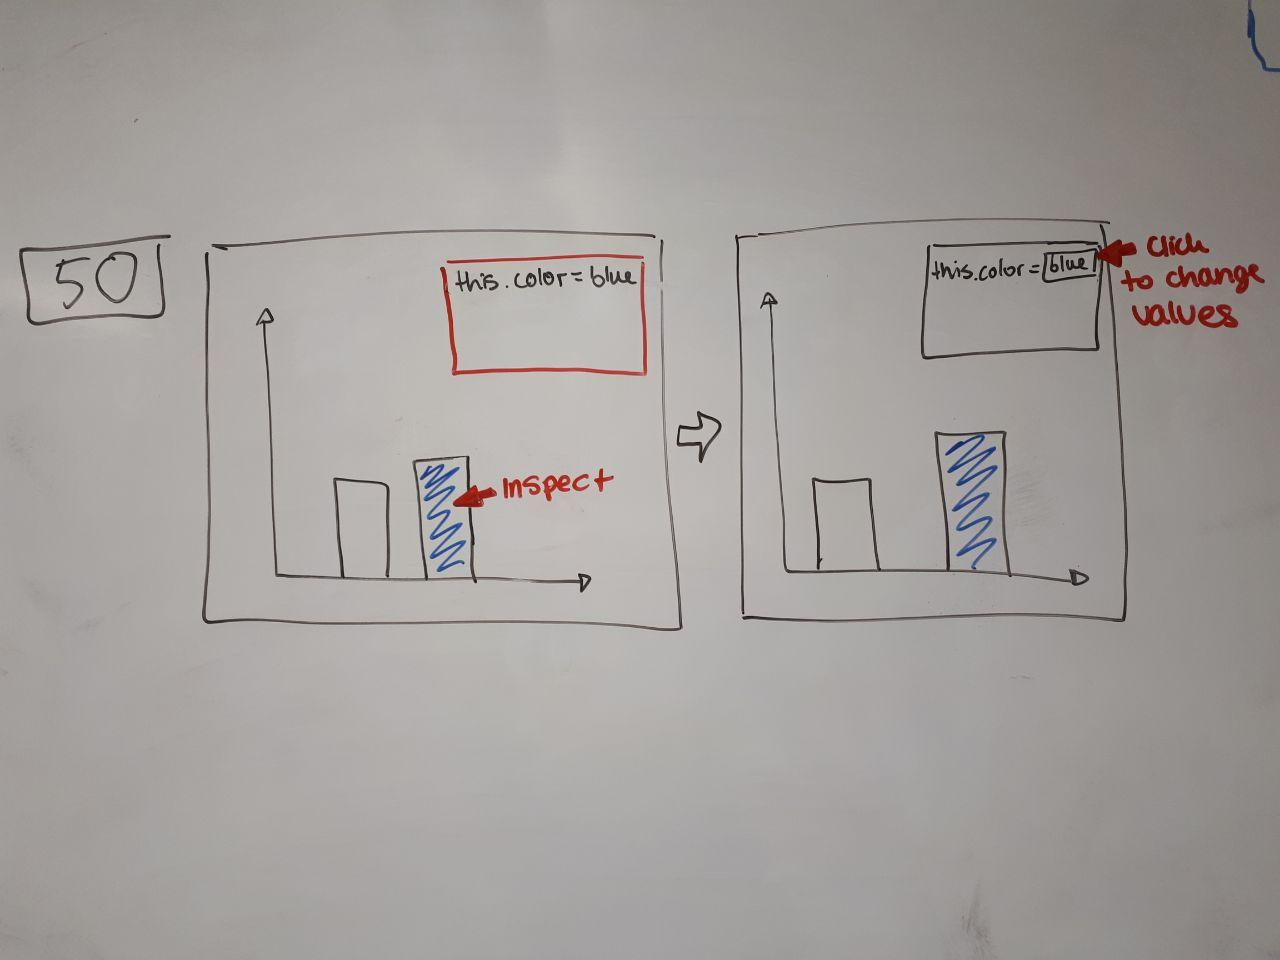 50
this.color=blue
Inspect
this.color=blue
Click
to change
values